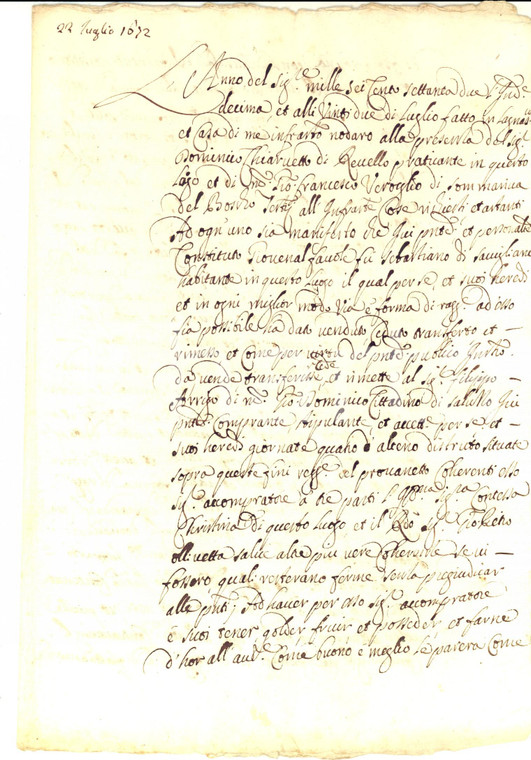 22 luglio 1672
L'Anno del Sig.re mille sei cento settanta due l'Ind.e
decima et alli vinti due di Luglio fatto in Lagnasco
et Casa di me infrartto nodaro alla presenza del Sig.r
Dominico Chiavetto di Revello praticante in questo
logo et di m.o Gio Francesco Veroglio di Sommariva
del Bosco test.i all infratte Cose richiesti et astanti
Ad ogn'uno sia manifesto che qui pnte et personalm.e
Constituto Giovenal fu Sebastiano di Savigliano
habitante in questo luogo il qual per se, et suoi heredi
et in ogni miglior modo via e forma di rag.e ad esso
sia possibile ha dato venduto Ceduto transferto et
rimesso et Come per virtù del pnte publico Instro
da vende Cede transferisse et rimette al Sig.r Filippo
di m.o Gio Dominico Cittadino di Saluzzo qui
pnte Comprante stipulante et accett.e per se et
suoi heredi giornate quatro d'alteno distruto situate
sopra queste fini reg.e del provanetto Coherenti esso
Sig.r accompratore a tre parti l' Sig.ra Contessa
Christina di questo luogo et il R.do Sig.r Gio
ollivetta salve altre più vere Coherentie se vi
fossero quali resterano ferme senza pregiudicar
alle pnti, Ad haver per esso Sig.r accompratore
e suoi tener golder fruir et posseder et farne
d'hor all'av.e Come buono e meglio le parera Come